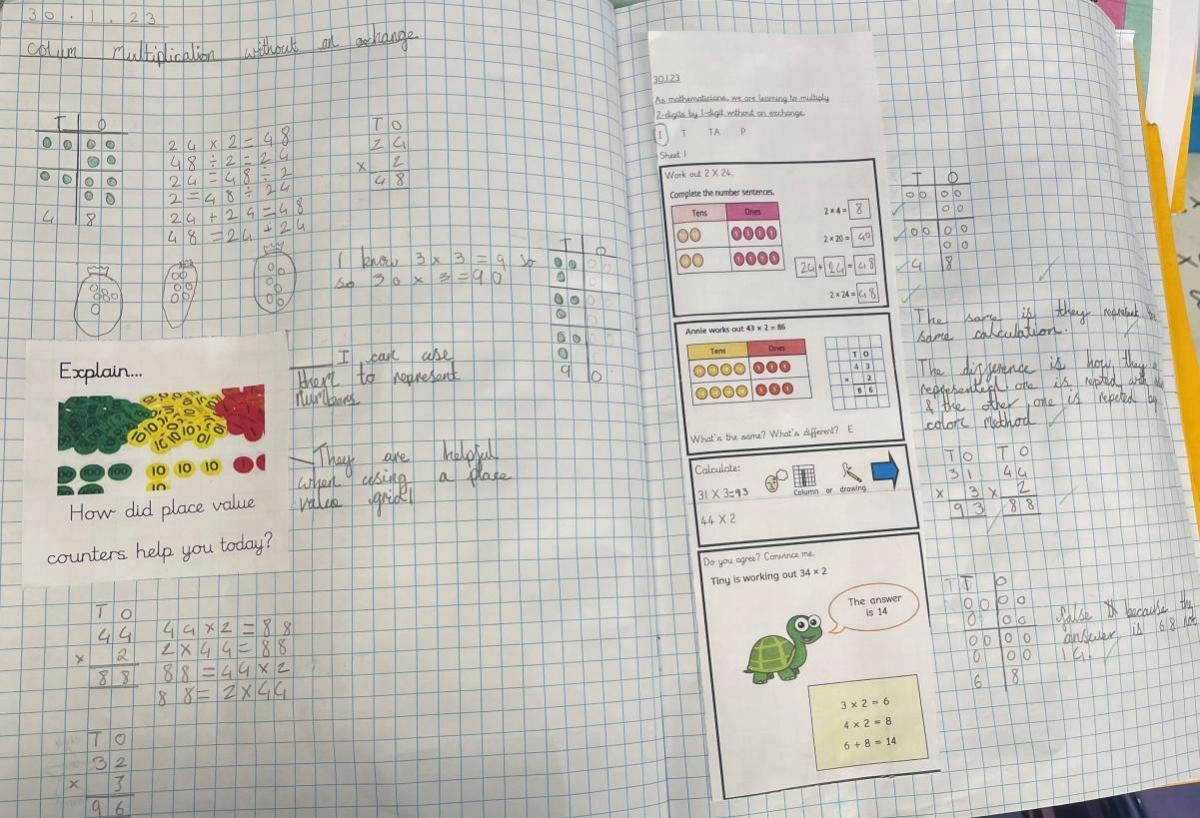 30.1.23
Colum Multiplication without an exchange
T O
4 8
24 x 2 = 48
48 ÷ 2 = 24
24 = 48 ÷ 2
2 = 48 ÷ 24
24 + 24 = 48
48 = 24 + 24
T O
24
x 2
48
I know 3 x 3 = 9 so
so 30 x 3 = 90
T O
9 0
Explain...
100 100
10 10 10 1
10
How did place value
counters help you today?
I can use
them to represent
numbers
They are helpful
when using a place
value grid
T O
44
x 2
88
44 x 2 = 88
2 x 44 = 88
88 = 44 x 2
88 = 2 x 44
T O
32
x 3
96
30.1.23
As mathematicians, we are learning to multiply
2-digits by 1-digit without an exchange.
I T TA P
Sheet 1
Work out 2 X 24.
Complete the number sentences.
Tens Ones
2 x 4 = 8
2 x 20 = 40
24 + 24 = 48
2 x 24 = 48
Annie works out 43 x 2 = 86
Tens Ones
T O
4 3
x 2
8 6
What's the same? What's different? E
Calculate:
31 X 3=93
Column or drawing
44 X 2
Do you agree? Convince me.
Tiny is working out 34 x 2
The answer
is 14
3 x 2 = 6
4 x 2 = 8
6 + 8 = 14
T O
4 8
The same is they represent
same calculation.
The difference is how they
represented one is
& the other one is by
method
T O T O
31 44
x 3 x 2
93 88
T O
6 8
false because the
answer is 68 not
14.